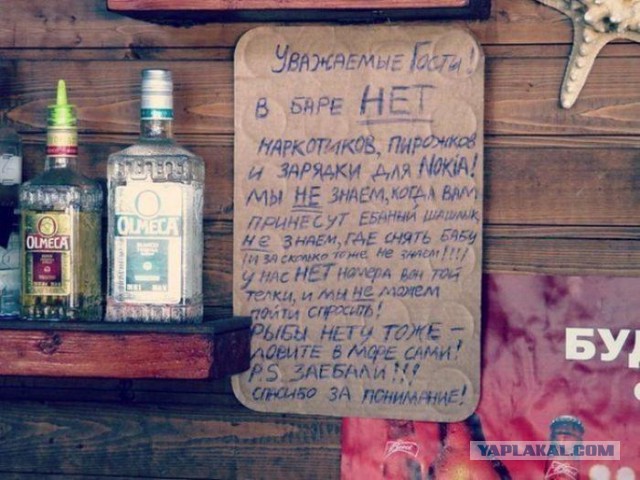 Уважаемые Гости!
В БАРЕ НЕТ
НАРКОТИКОВ, ПИРОЖКОВ
И ЗАРЯДКИ ДЛЯ NOKIA!
МЫ НЕ ЗНАЕМ, КОГДА ВАМ
ПРИНЕСУТ ЕБАНЫЙ ШАШЛЫК,
НЕ ЗНАЕМ, ГДЕ СНЯТЬ БАБУ
(И ЗА СКОЛЬКО ТОЖЕ НЕ ЗНАЕМ!!!!)
У НАС НЕТ НОМЕРА ВОН ТОЙ
ТЕЛКИ, И МЫ НЕ МОЖЕМ
ПОЙТИ СПРОСИТЬ!
РЫБЫ НЕТУ ТОЖЕ –
ЛОВИТЕ В МОРЕ САМИ!
P.S. ЗАЕБАЛИ!!!
СПАСИБО ЗА ПОНИМАНИЕ!
OLMECA
OLMECA
БУД
YAPLAKAL.COM